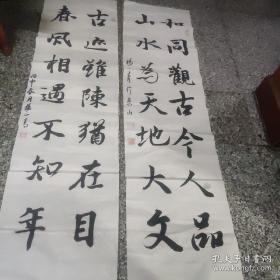 和同觀古今人品
山水為天地大文
古迹雖陳猶在目
春風相遇不知年
孔夫子旧书网